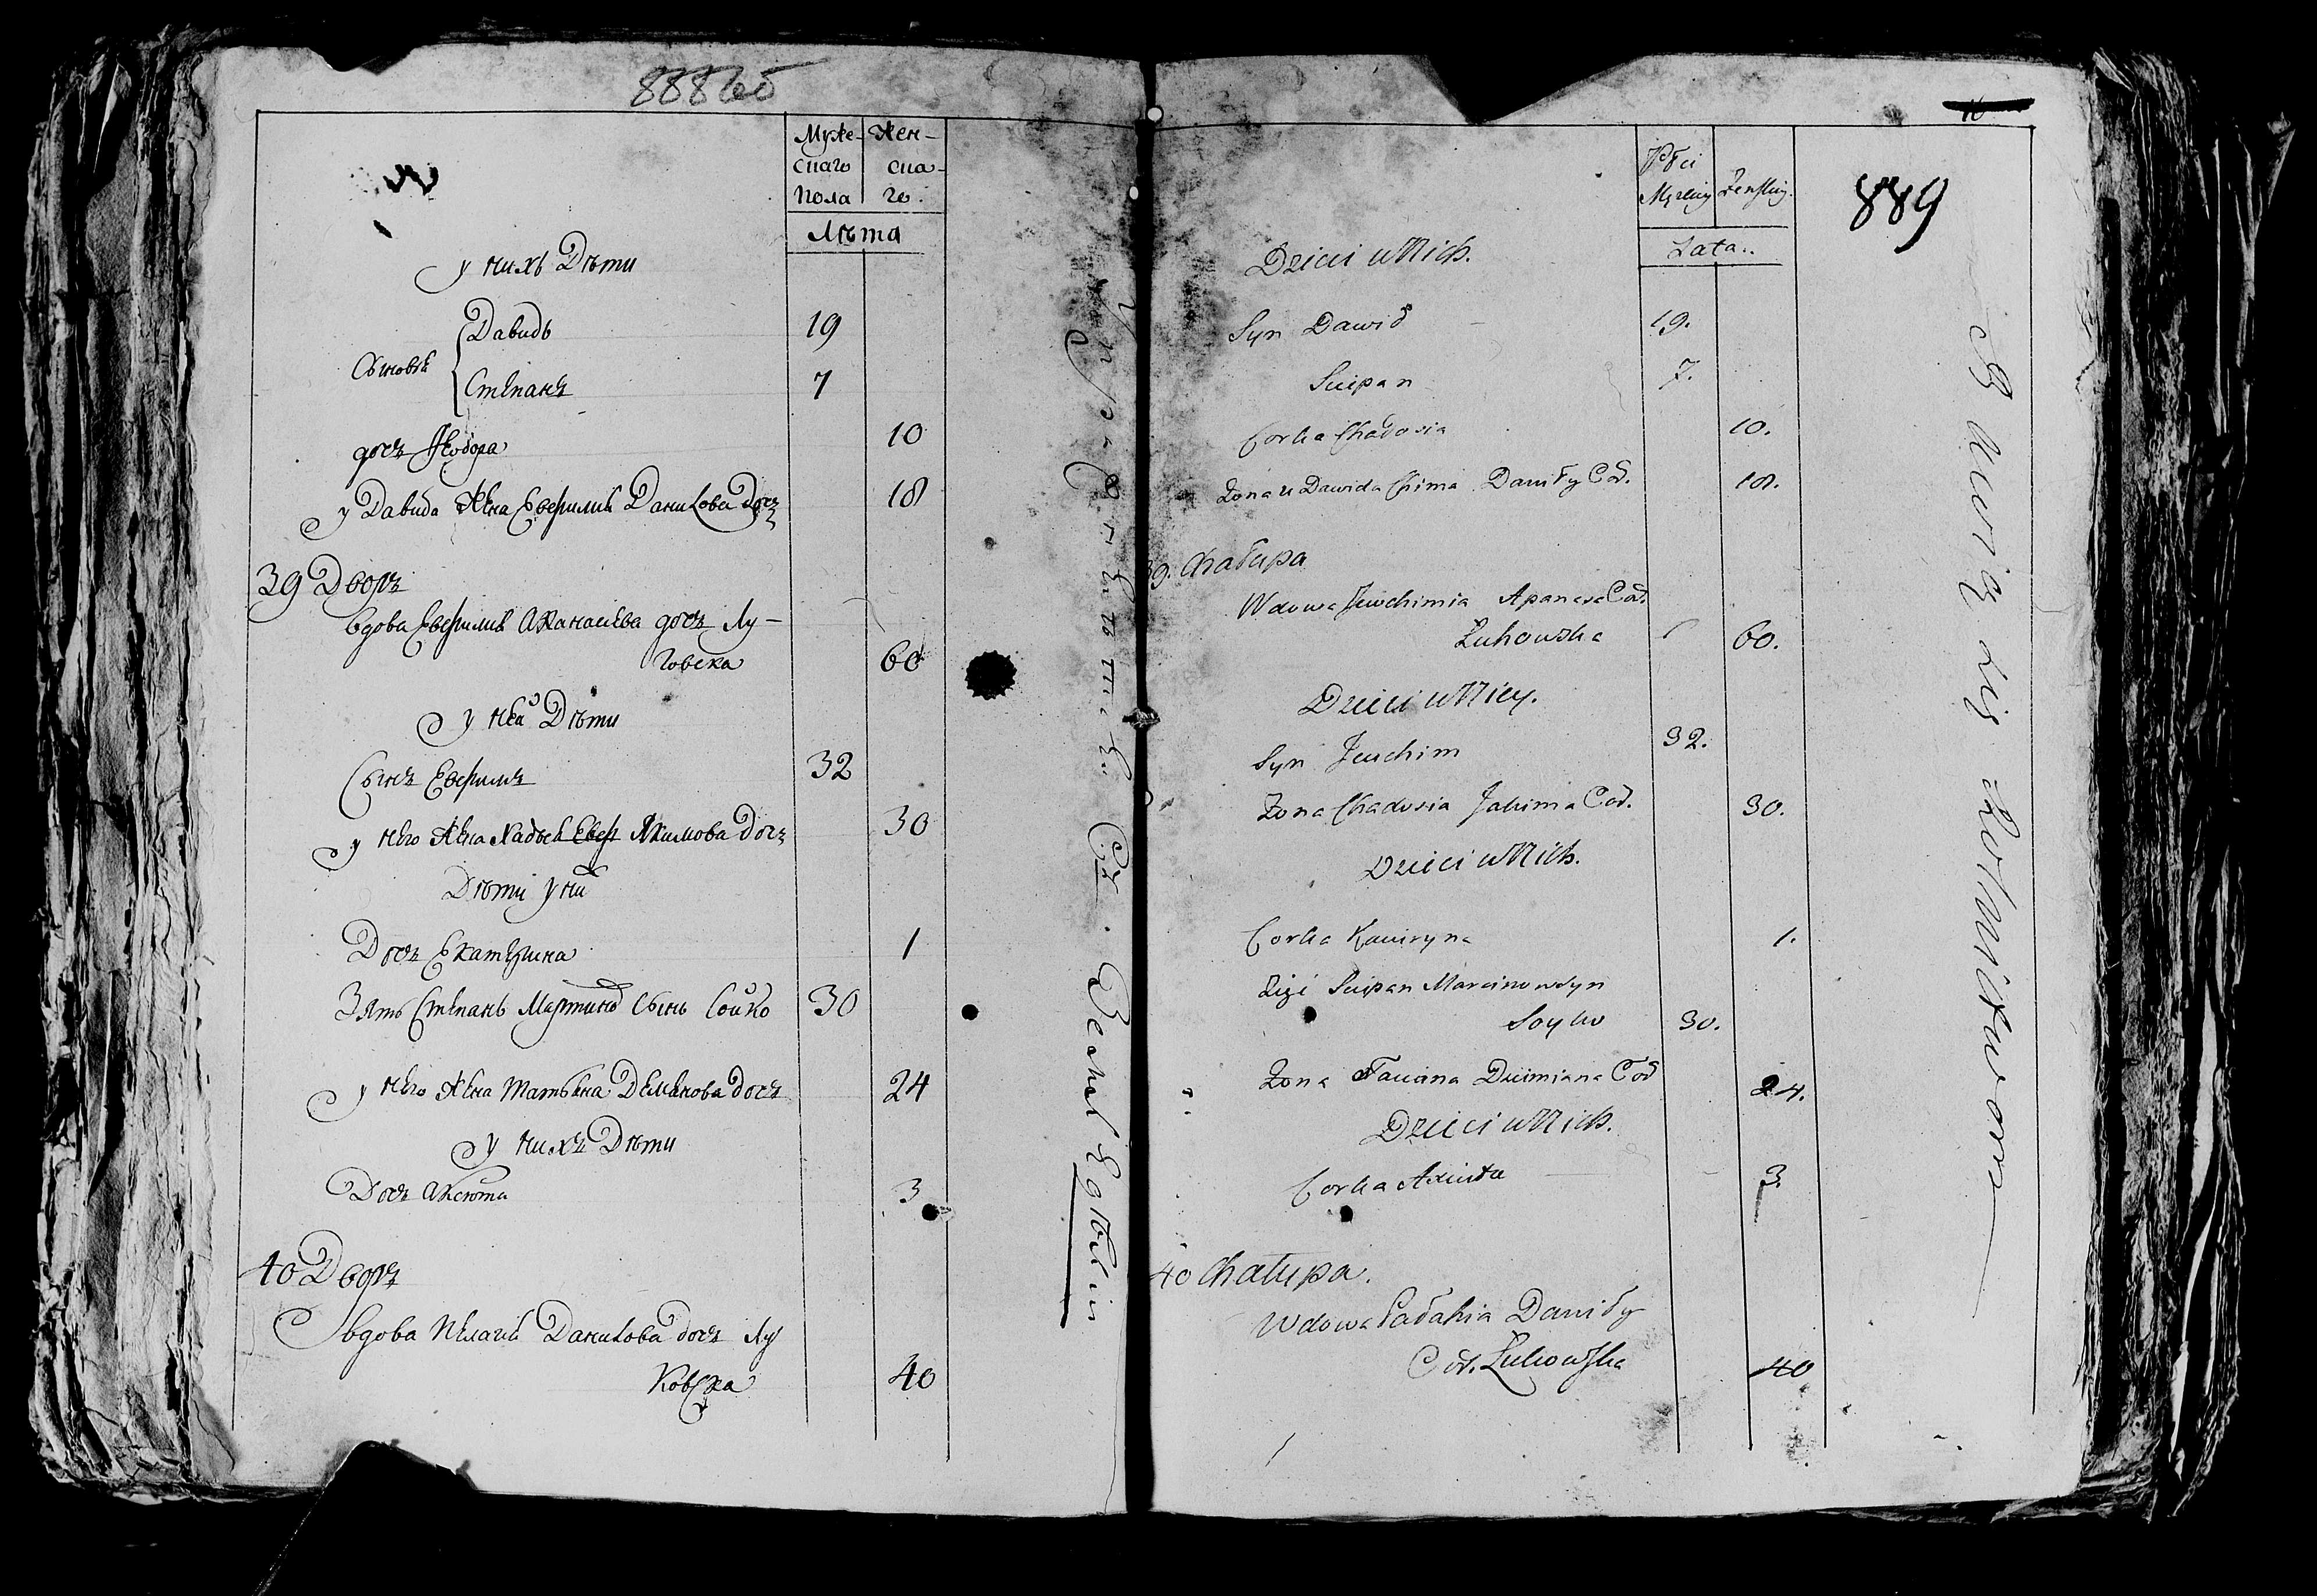 888 об
Муже- Жен-
скаго ска-
Пола го.
Лѣта
у нихъ Дѣти
Давидъ 19
Сыновья
Степанъ 7
дочь Ѳеодора 10
у Давида жена Евфимия Данилова Дочь 18
39 Дворъ
вдова Евфимия Афанасиева дочь Лу-
ковска 60
у неа Дѣти
Сынъ Евфимъ 32
у него жена Хадося Якимова дочь 30
Дѣти у ни
Дочь Екатерина 1
Зять Степанъ Мартиновъ сынъ Сойко 30
у него жена Татьяна Демянова дочь 24
у нихъ Дѣти
Дочь Аксюта 3
40 Дворъ
вдова Пелагия Данилова дочь Лу
ковска 40
889
Płci
Męzkiey Żenskiey.
Lata.
Dzieci u Nich.
Syn Dawid 19.
Sciepan 7.
Corka Chadosia 10.
Żona u Dawida Chima Daniły Cór. 18.
39. Chałupa
Wdowa Jewchimia Apanasa Cór.
Łukowska 60.
Dzieci u Niey.
Syn Jewchim 32.
Żona Chadosia Jakima Cór. 30.
Dzieci u Nich.
Corka Kaciryna 1.
Zięć Sciepan Marcinow Syn
Soyko 30.
Żona Taciana Dziemiana Cór 24.
Dzieci u Nich.
Corka Axiuta 3.
40 Chałupa.
Wdowa Pałahia Daniły
Cór. Łukowska 40